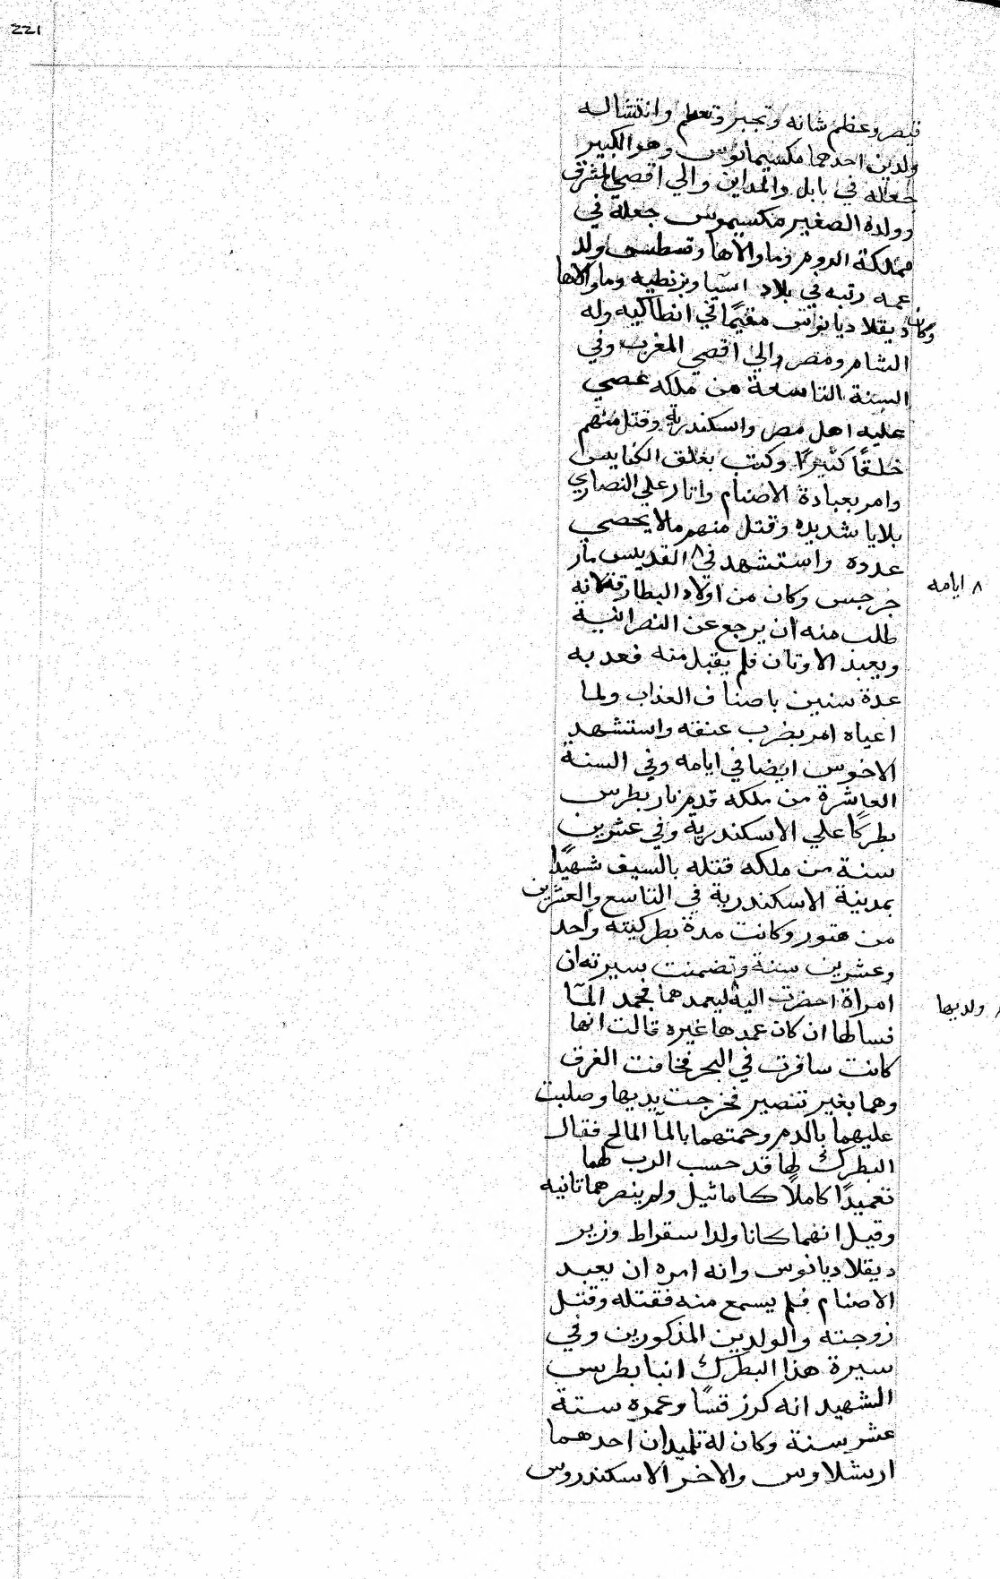 221
قيصر وعظم شانه وتجبر وتعظم وانتشا له
ولدين احدهما مكسيمانوس وهو الكبير
جعله في بابل والمداين والي اقصي المشرق
وولده الصغير مكسيموس جعله في
مملكة الروم وما والاها وقسطس ولد
عمه رتبه في بلاد اسيا وبزنطيه وما والاها
وكان ديقلاديانوس مقيمًا في انطاكيه وله
الشام ومصر والي اقصي المغرب وفي
السنة التاسعة من ملكه عصي
عليه اهل مصر واسكندرية وقتل منهم
خلقًا كثيرًا وكتب بغلق الكنايس
وامر بعبادة الاصنام واثار علي النصاري
بلايا شديده وقتل منهم مالا يحصي
عدده واستشهد في ٨ القديس مار
٨ ايامه
جرجس وكان من اولاد البطارقة لانه
طلب منه ان يرجع عن النصرانية
ويعبد الاوتان فلم يقبل منه فعدبه
عدة سنين باصناف العذاب ولما
اعياه امر بضرب عنقه واستشهد
الاخوس ايضا في ايامه وفي السنة
العاشرة من ملكه قدم بطرس
بطركًا علي الاسكندرية وفي عشرين
سنة من ملكه قتله بالسيف شهيدًا
بمدينة الاسكندرية في التاسع والعشرين
من هتور وكانت مدة بطركيته واحد
وعشرين سنة وتضمنت سيرته ان
امراة احضرت اليه ٨ ليعمدهما فجمد المآ
٨ ولديها
فسالها ان كان عمدها غيره قالت انها
كانت سافرت في البحر فخافت الغرق
وهما بغير تنصير فخرجت يديها وصلبت
عليهما بالدم وحمتهما بالمآ المالح فقال
البطرك لها قد حسب الرب لهما
تعميدًا كاملاً ولم ينصرهما تانيه
وقيل انهما كانا ولدا سقراط وزير
ديقلاديانوس وانه امره ان يعبد
الاصنام فلم يسمع منه فقتله وقتل
زوجته والولدين المذكورين وفي
سيرة هذا البطرك انبا بطرس
الشهيد انه كرز قسًا وعمره ستة
عشر سنة وكان له تلميدان احدهما
ارشلاوس والاخر الاسكندروس